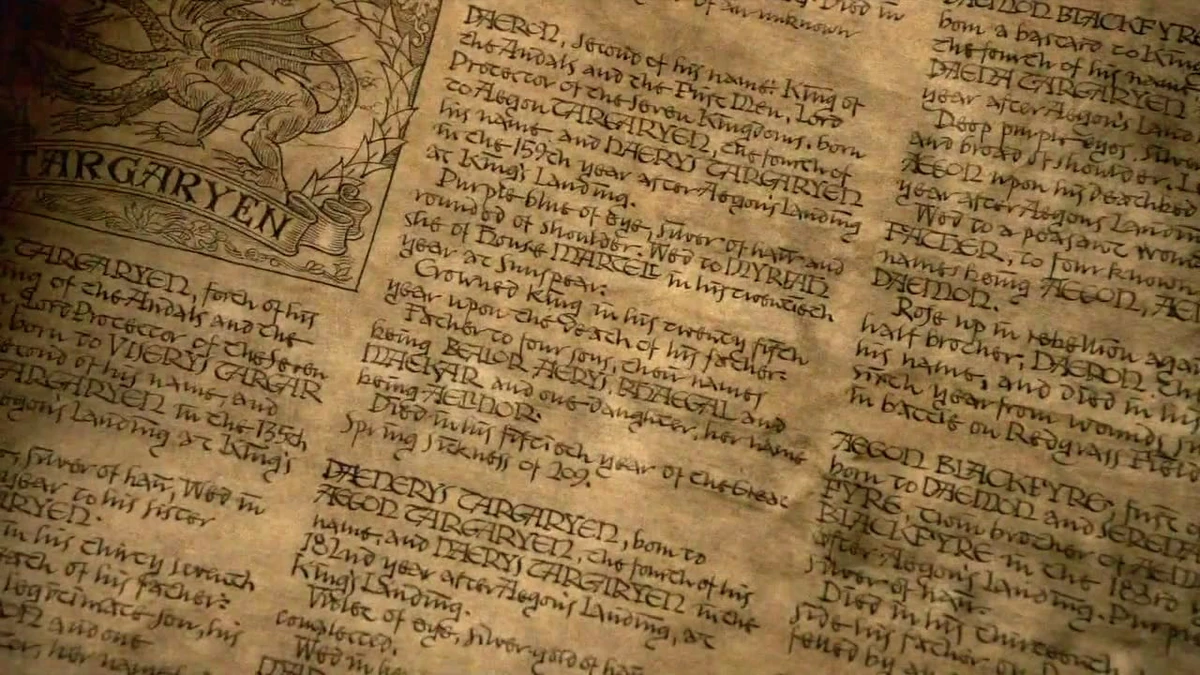 TARGARYEN
TARGARYEN, forth of his
ng of the Andals and the
Lord Protector of the Seven
born to VISERYS TARGAR
econd of his name, and
ARGARYEN in the 135th
egon's Landing at King's
silver of hair, Wed in
year to his sister
RYEN.
in his thirty seventh
eath of his father:
legitimate son, his
and one
her name
Died in
of an unknown
DAERON, second of his name: King of
the Andals and the First Men, Lord
Protector of the Seven Kingdoms, born
to Aegon TARGARYEN, the fourth of
his name and NAERYS TARGARYEN
in the 159th year after Aegon's Landing
at King's Landing.
Purple-blue of eye, silver of hair and
rounded of shoulder. Wed to MYRIAH
she of House MARTELL in his twentieth
year at Sunspear:
Crowned King in his twenty fifth
year upon the death of his father:
Father to four sons, their names
being BAELOR, AERYS, RHAEGAL and
MAEKAR and one daughter, her name
being AELINOR.
Died in his fiftieth year of the Great
Spring Sickness of 209.
DAENERYS TARGARYEN, born to
AEGON TARGARYEN, the fourth of his
name, and NAERYS TARGARYEN in the
182nd year after Aegon's Landing, at
King's Landing.
Violet of eye, silver-gold of hair
complected.
Wed in he
DAEMON BLACKFYRE
born a bastard to King
the fourth of his name
DAENA TARGARYEN
year after Aegon's Land
Deep purple eyes, silver
and broad of shoulder.
AEGON upon his deathbed
year after Aegon's Landin
Wed to a peasant wom
FATHER, to four known
names being AEGON, AE
DAEMON.
Rose up in rebellion again
half brother, DAERON
his name, and died in his
year from wounds
in battle on Redgrass Field
AEGON BLACKFYRE, first
born to DAEMON and SERENA
FYRE, twin brother of AEM
BLACKFYRE in the 183rd
after Aegon's Landing. Purple
silver of hair.
Died in his thirteenth
side his father on
felled by